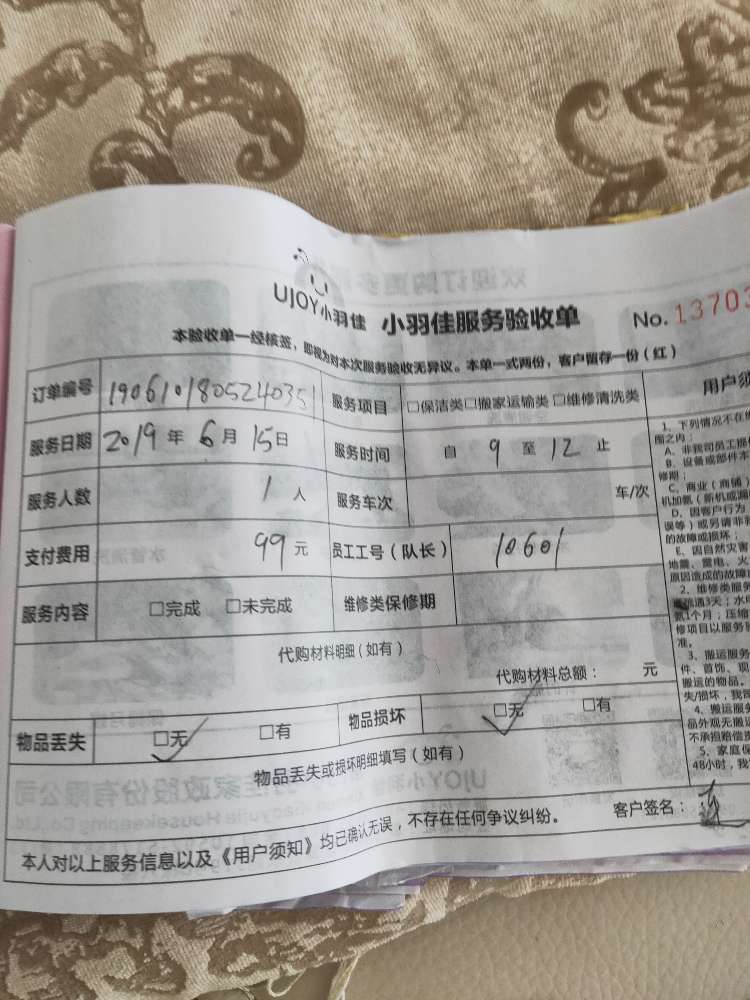 UJOY小羽佳 小羽佳服务验收单 No. 13703
本验收单一经核签，即视为对本次服务验收无异议。本单一式两份，客户留存一份（红）
订单编号 190610180524035 服务项目 □保洁类□搬家运输类□维修清洗类
服务日期 2019 年 6 月 15 日 服务时间 自 9 至 12 止
服务人数 1 人 服务车次 车/次
支付费用 99 元 员工工号（队长） 10601
服务内容 □完成 □未完成 维修类保修期
代购材料明细（如有）
代购材料总额： 元
物品丢失 □无 □有 物品损坏 □无 □有
物品丢失或损坏明细填写（如有）
本人对以上服务信息以及《用户须知》均已确认无误，不存在任何争议纠纷。 客户签名：
用户须
1、下列情况不在
围之内：
A、非我司员工
B、设备或部件本
修期；
C、商业（商铺）
机加氟（新机或漏
D、因客户行为
误等）或另请非
的故障或损坏；
E、因自然灾害
地震、雷电、火
原因造成的故障
2、维修类服务
通3天；水电
氟1个月；压缩
修项目以服务
准。
3、搬运服务
件、首饰、现
搬运的物品。
失/损坏，我
4、搬运服务
品外观无搬运
不承担赔偿
5、家庭保
48小时，我